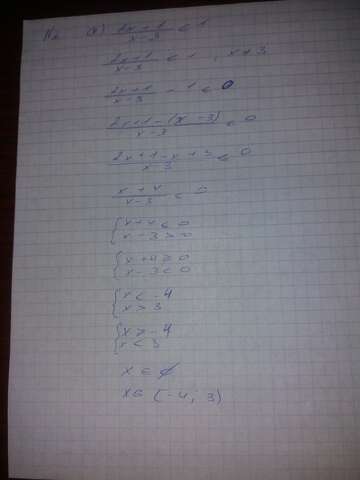 №2 (4) (2x+1)/(x-3) < 1
(2x+1)/(x-3) < 1, x≠3
(2x+1)/(x-3) - 1 < 0
(2x+1-(x-3))/(x-3) < 0
(2x+1-x+3)/(x-3) < 0
(x+4)/(x-3) < 0
{x+4<0
{x-3>0
{x+4>0
{x-3<0
{x<-4
{x>3
{x>-4
{x<3
x∈∅
x∈(-4; 3)